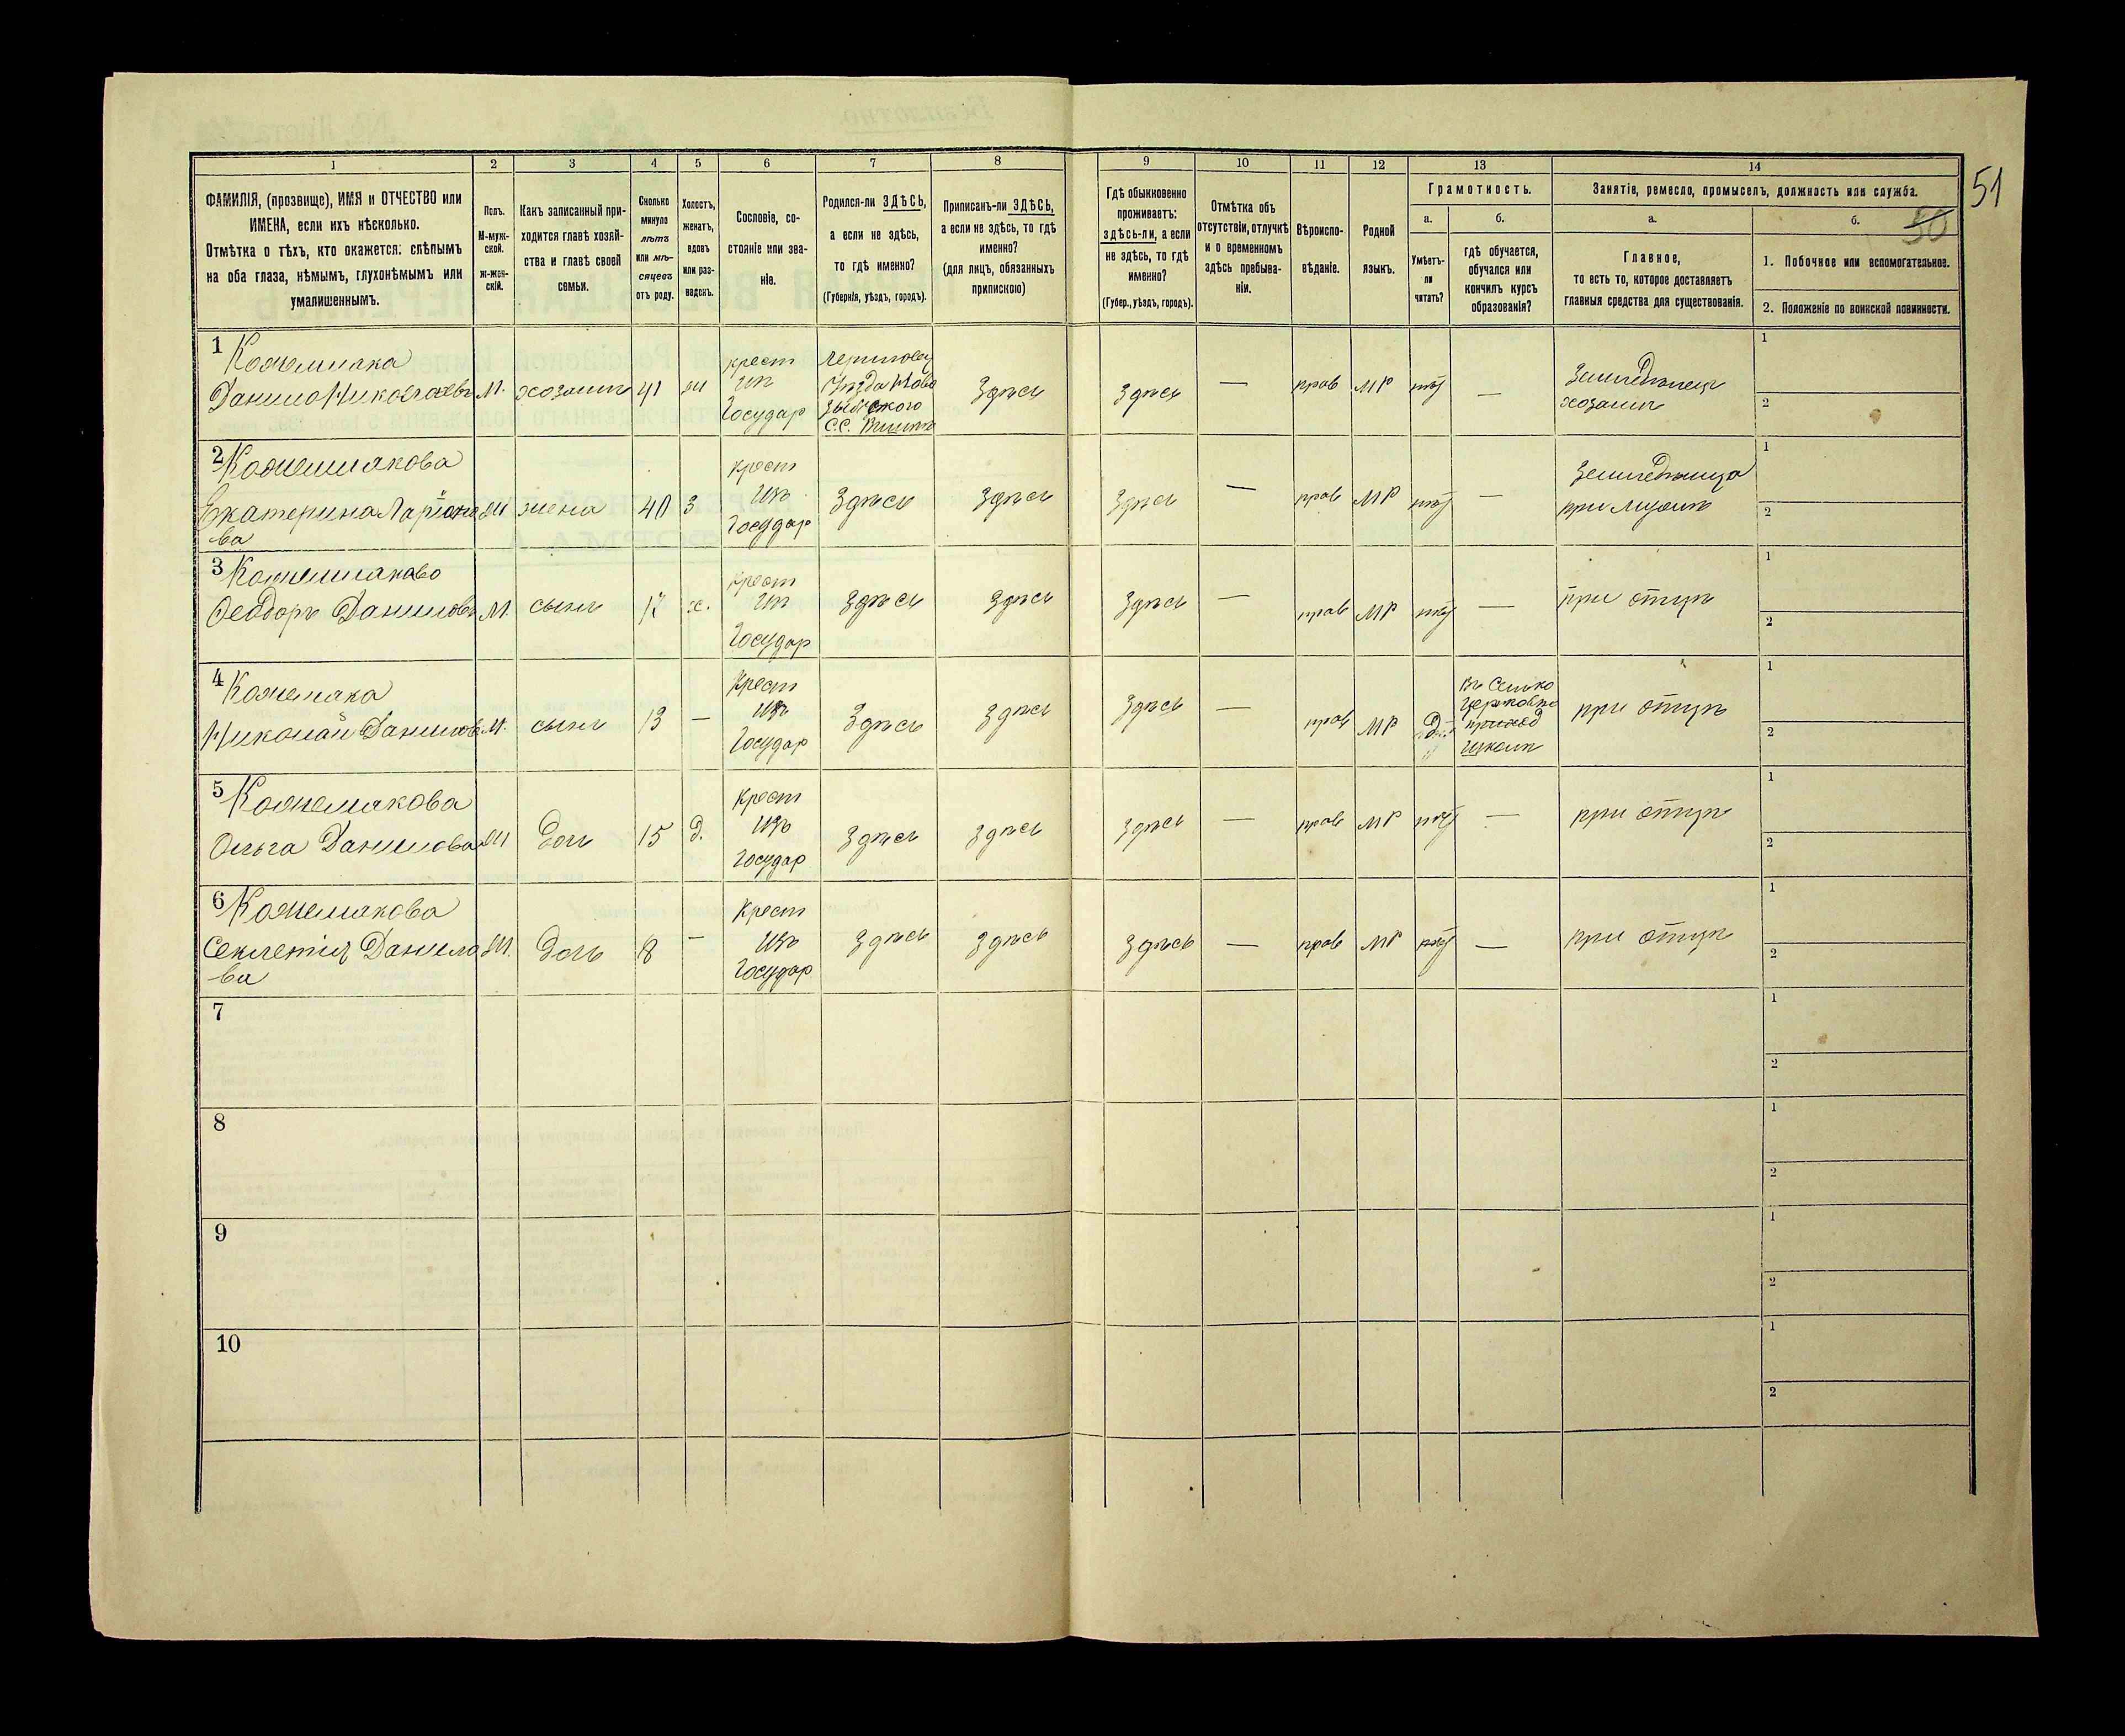 1 2 3 4 5 6 7 8 9 10 11 12 13 14
51
50
ФАМИЛІЯ, (прозвище), ИМЯ и ОТЧЕСТВО или
ИМЕНА, если ихъ нѣсколько.
Отмѣтка о тѣхъ, кто окажется: слѣпымъ
на оба глаза, нѣмымъ, глухонѣмымъ или
умалишеннымъ.
Полъ.
М-муж-
ской.
Ж-жен-
скій.
Какъ записанный при-
ходится главѣ хозяй-
ства и главѣ своей
семьи.
Сколько
минуло
лѣтъ
или мѣ-
сяцевъ
отъ роду.
Холостъ,
женатъ,
вдовъ
или раз-
веденъ.
Сословіе, со-
стояніе или зва-
ніе.
Родился-ли ЗДѢСЬ,
а если не здѣсь,
то гдѣ именно?
(Губернія, уѣздъ, городъ).
Приписанъ-ли ЗДѢСЬ,
а если не здѣсь, то гдѣ
именно?
(для лицъ, обязанныхъ
припискою)
Гдѣ обыкновенно
проживаетъ:
здѣсь-ли, а если
не здѣсь, то гдѣ
именно?
(Губер., уѣздъ, городъ).
Отмѣтка объ
отсутствіи, отлучкѣ
и о временномъ
здѣсь пребыва-
ніи.
Вѣроиспо-
вѣданіе.
Родной
языкъ.
Грамотность.
а.
Умѣетъ-
ли
читать?
б.
гдѣ обучается,
обучался или
кончилъ курсъ
образованія?
Занятіе, ремесло, промыселъ, должность или служба.
а.
Главное,
то есть то, которое доставляетъ
главныя средства для существованія.
б.
1. Побочное или вспомогательное.
2. Положеніе по воинской повинности.
1 Кожемяка
Данило Николаевъ М. хозяинъ 41 ж
крест
изъ
Государ
уѣзда Ново
С.С.
Здѣсь Здѣсь — прав МР нѣт —
Земледѣлец
хозяинъ
1
2
2 Кожемякова
Екатерина Ларіоно Ж жена 40 З
ва
крест
изъ
Государ
Здѣсь Здѣсь Здѣсь — прав МР нѣт —
Земледѣлица
при мужѣ
1
2
3 Кожемяково
Феодоръ Даниловъ М. сынъ 17 х.
крест
изъ
Государ
Здѣсь Здѣсь Здѣсь — прав МР нѣт —
при отцѣ
1
2
4 Кожемяка
Николай Данилов М. сынъ 13 —
крест
изъ
Государ
Здѣсь Здѣсь Здѣсь — прав МР Да
приход
школѣ
при отцѣ
1
2
5 Кожемякова
Ольга Данилова Ж Дочь 15 д.
крест
изъ
Государ
Здѣсь Здѣсь Здѣсь — прав МР нѣт —
при отцѣ
1
2
6 Кожемякова
Секлетія Данило Ж. Дочь 8 —
ва
крест
изъ
Государ
Здѣсь Здѣсь Здѣсь — прав МР нѣт —
при отцѣ
1
2
7
1
2
8
1
2
9
1
2
10
1
2